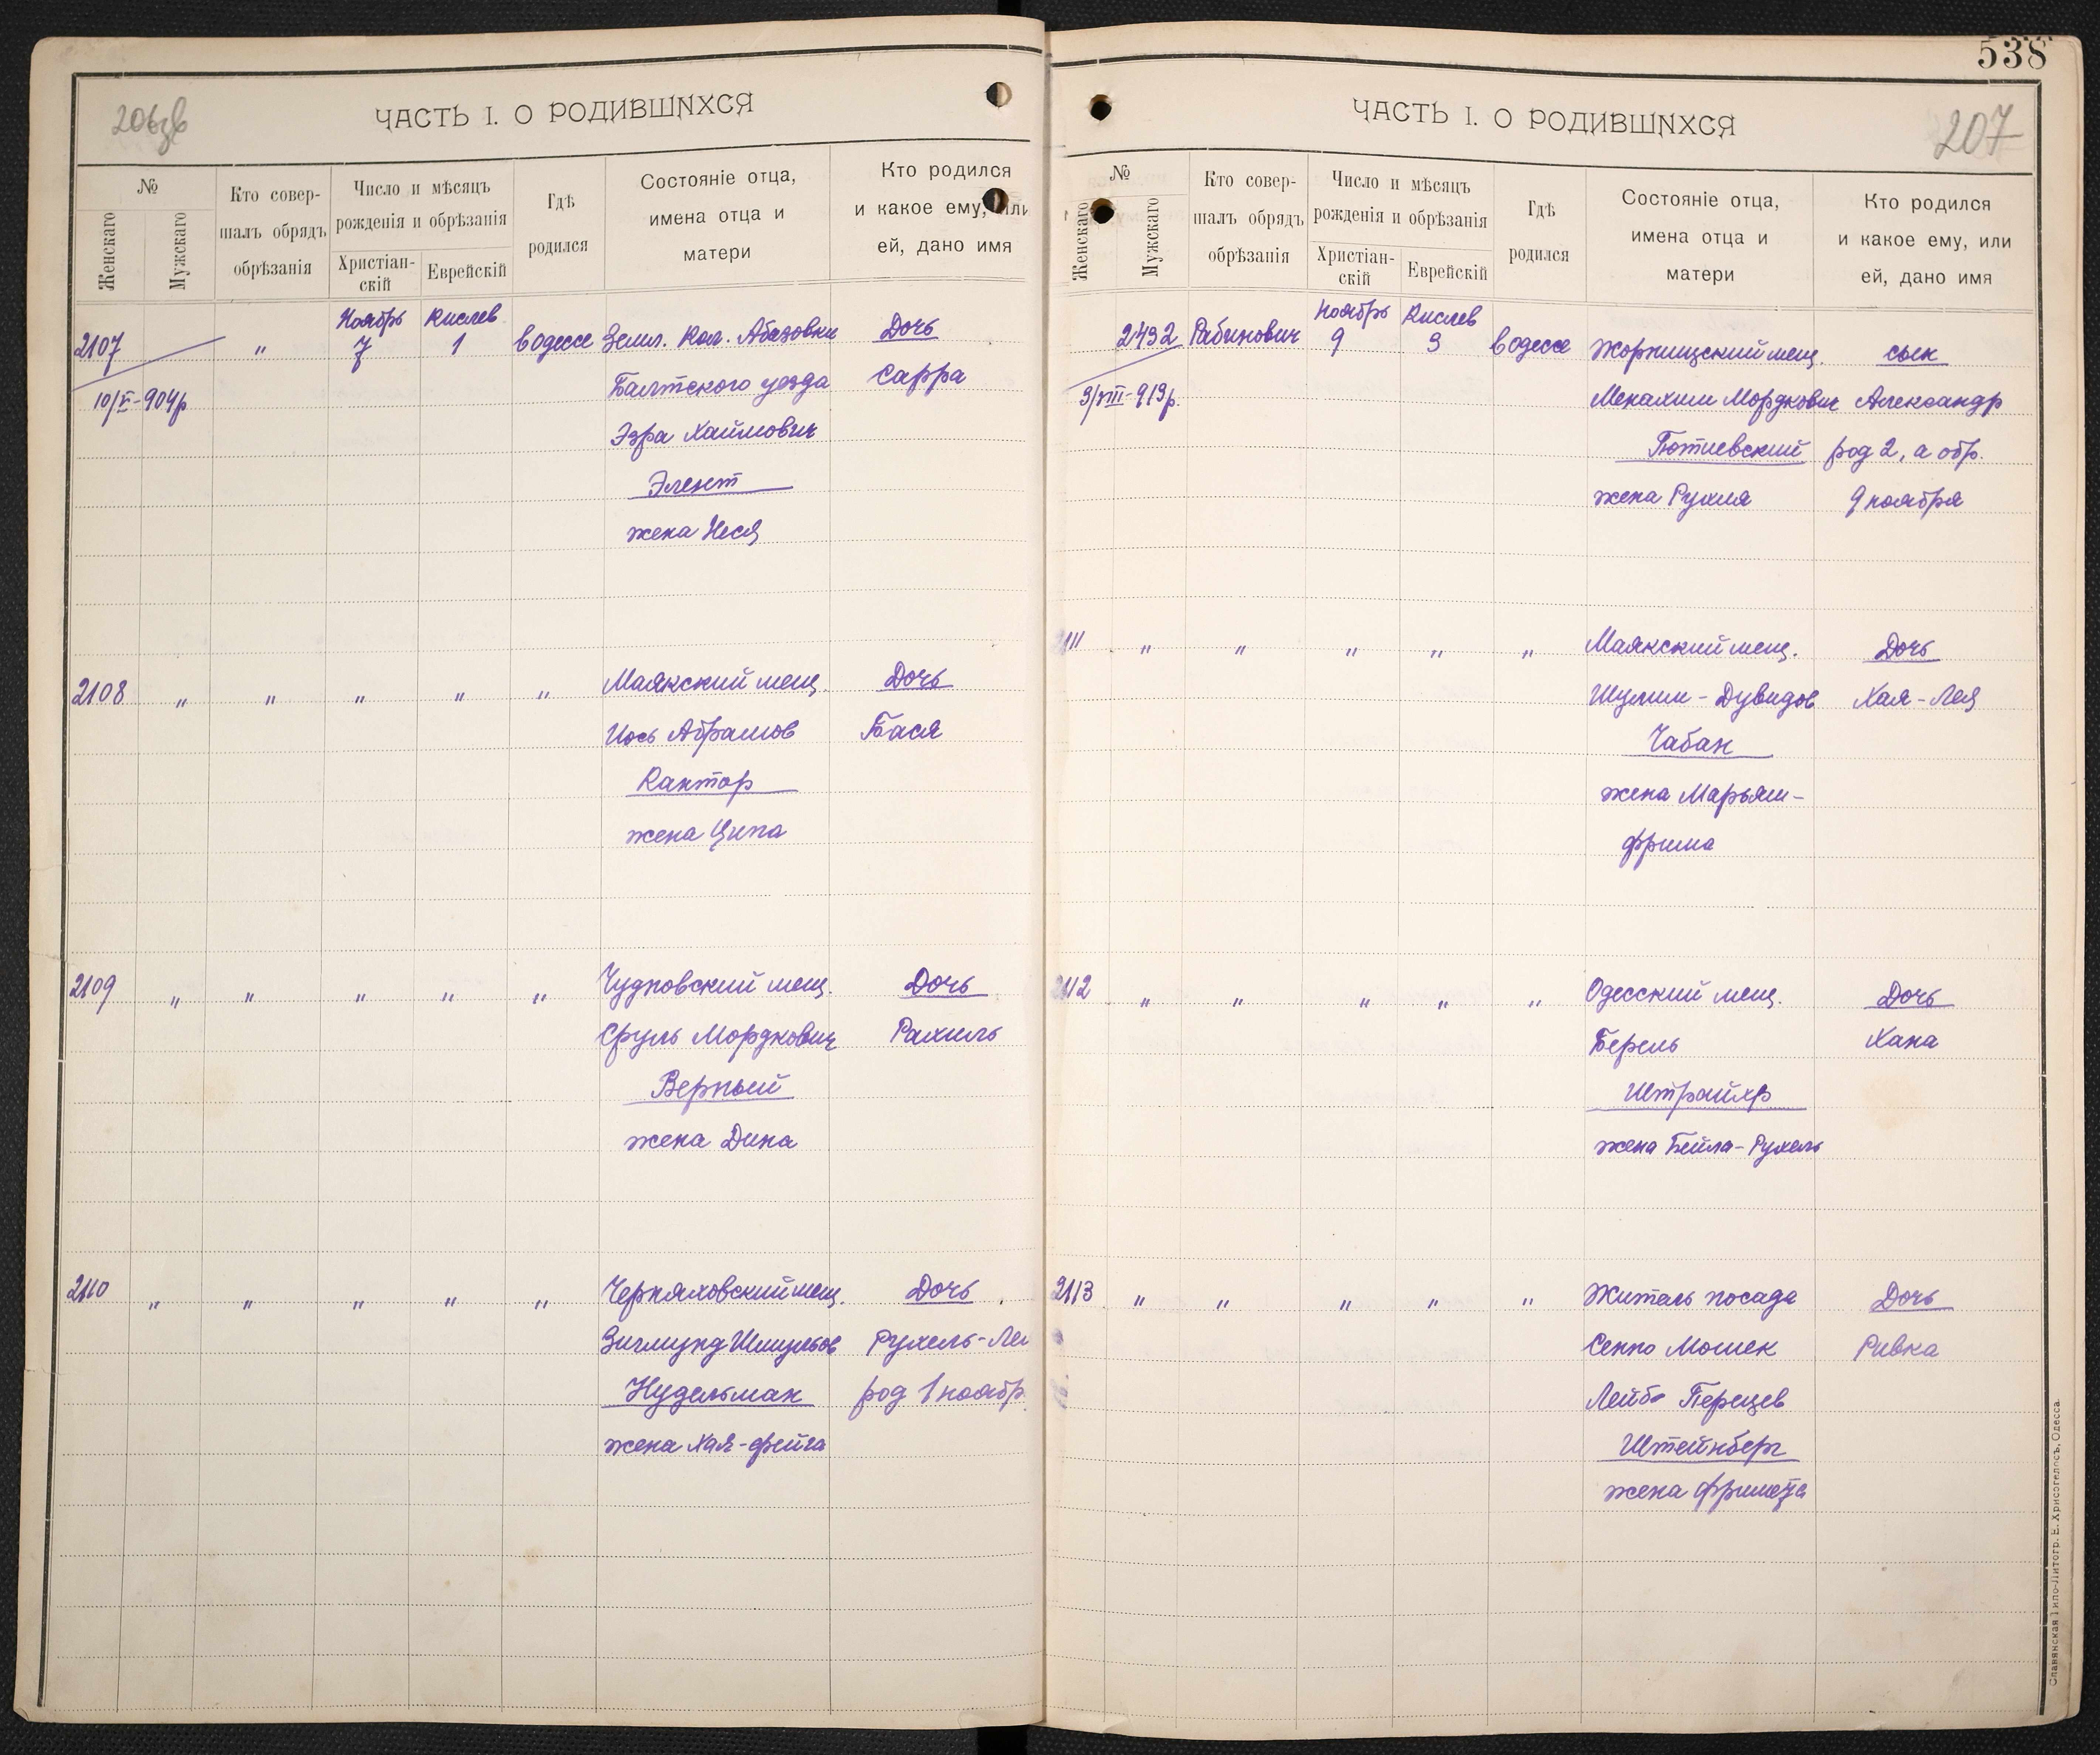 206зв
ЧАСТЬ I. О РОДИВШИХСЯ
№
Женскаго
Мужскаго
Кто совер-
шалъ обрядъ
обрѣзанія
Число и мѣсяцъ
рожденія и обрѣзанія
Христіан-
скій
Еврейскій
Гдѣ
родился
Состояніе отца,
имена отца и
матери
Кто родился
и какое ему, или
ей, дано имя
Ноябрь Кислев
2107 " 7 1 в Одессе Земл. Кол. Абазовки Дочь
10/V-904р Балтского уезда Сарра
Эзра Хаймович
Элент
жена Неся
2108 " " " " " Маякский мещ. Дочь
Иось Абрамов Бася
Кантор
жена Ципа
2109 " " " " " Чудновский мещ. Дочь
Сруль Мордкович Рахиль
Верный
жена Дина
2110 " " " " " Черняховский мещ. Дочь
Зигмунд Шмульов Рухель-Лея
Нудельман род 1 ноябр.
жена Хая-Фейга
538
207
ЧАСТЬ I. О РОДИВШИХСЯ
№
Женскаго
Мужскаго
Кто совер-
шалъ обрядъ
обрѣзанія
Число и мѣсяцъ
рожденія и обрѣзанія
Христіан-
скій
Еврейскій
Гдѣ
родился
Состояніе отца,
имена отца и
матери
Кто родился
и какое ему, или
ей, дано имя
Ноябрь Кислев
2432 Рабинович 9 3 в Одессе Жорнищский мещ. сын
3/VIII-913р. Менахим Мордкович Александр
род 2, а обр.
жена Рухля 9 ноября
2111 " " " " " Маякский мещ. Дочь
Шулим-Дувидов Хая-Лея
Чабан
жена Марьям-
Фрима
2112 " " " " " Одесский мещ. Дочь
Берель Хана
Штрайхр
жена Бейла-Рухель
2113 " " " " " Житель посада Дочь
Сенно Мошек Ривка
Лейб Перецев
Штейнберг
жена
Славянская Типо-Литогр. Е. Хрисогелосъ, Одесса.